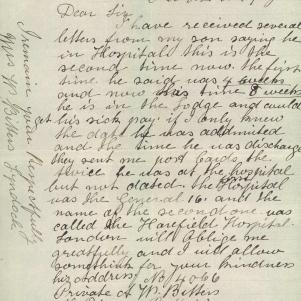 Dear Sir
I have received several
letters from my son saying he
in Hospital this is the
second time now. the first
time he said was 4 weeks
and now this time 8 weeks
he is in the Lodge and could
get his sick pay. if I only knew
the date he was addmited
and the time he was discharge
they sent me post Cards the
twice he was at the hospital
but not dated. the Hospital
was the General 16. and the
name of the second one was
called the Harfield Hospital.
London will Ablige me
greatfully and I will allow
something for your kindness
his Address No 4066
Private A W Betters
I remain your Respectfully
Mrs W Betters